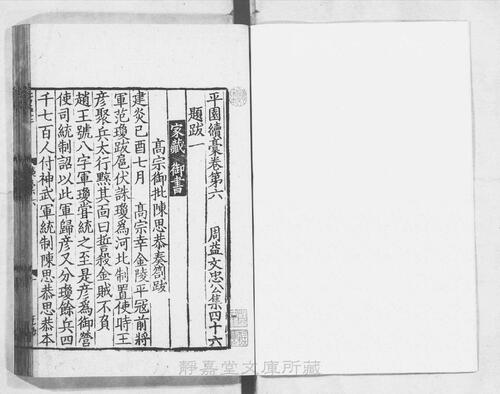 平園續藁卷第六　周益文忠公集四十六
題跋一
家藏御書
高宗御批陳思恭奏劄跋
建炎己酉七月　高宗幸金陵平冦前將
軍范瓊跋扈伏誅瓊爲河北制置使時王
彦聚兵太行㸃其面曰誓殺金賊不負
趙王號八字軍瓊甞統之至是彦爲御營
使司統制詔以此軍歸彦又分瓊餘兵四
千七百人付神武軍統制陳思恭思恭本
靜嘉堂文庫所藏